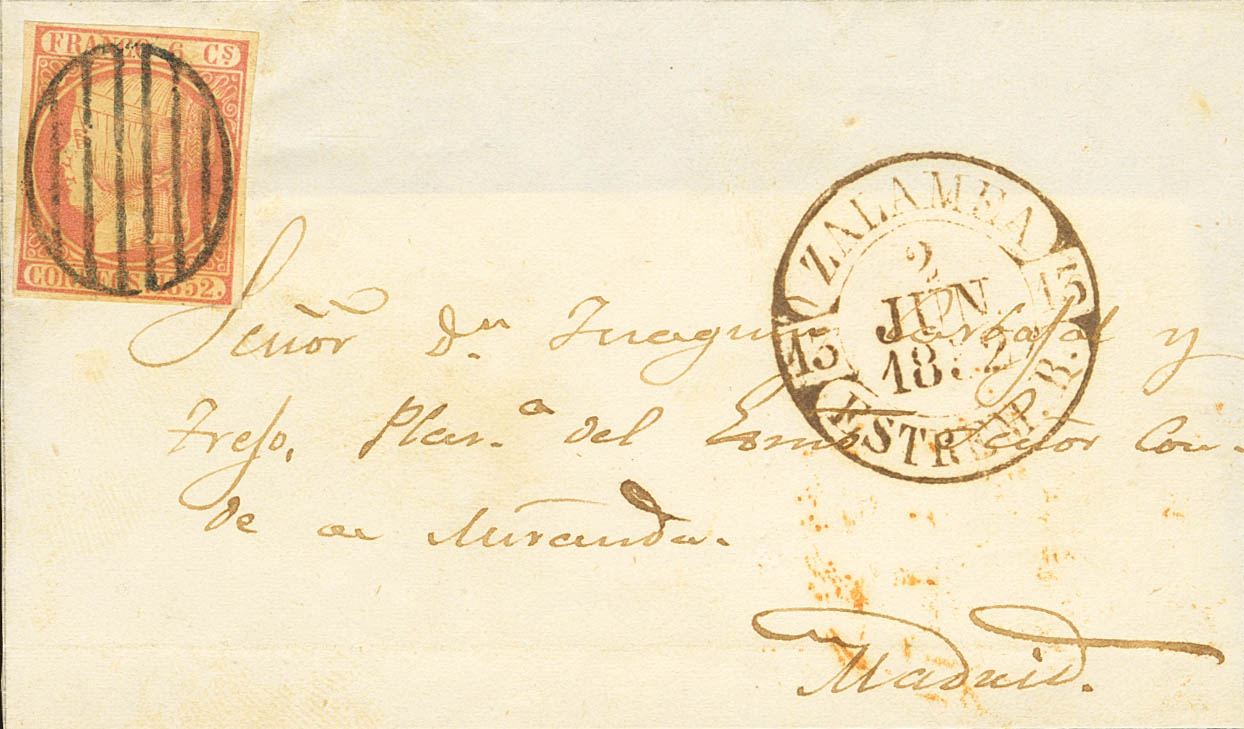 FRANCO 6 Cs
CORREOS. 1852.
ZALAMEA
2
JUN
1852
13 13
ESTREM. B.
Señor Dn. Juaquin Carbajal y
Trejo, del Señor Con-
de de Miranda.
Madrid.